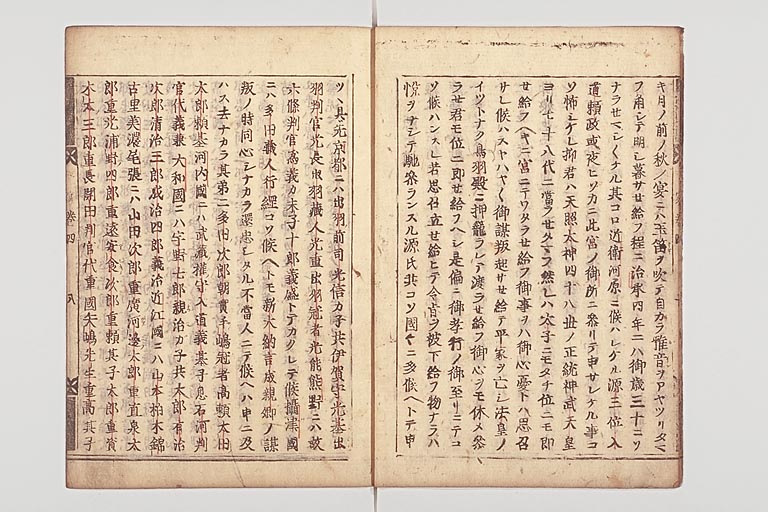 キ月ノ前ノ秋ノ宴ニハ玉笛ヲ吹テ自カラ雅音ヲアヤツリタマ
フ角シテ明シ暮サセ給フ程ニ治承四年ニハ御歳三十ニソ
ナラセマシ〱ケル其コロ近衛河原ニ候ハレケル源三位入
道頼政或夜ヒソカニ此宮ノ御所ニ参リテ申サレケル事コ
ソ怖シケレ抑君ハ天照太神四十八世ノ正統神武天皇
ヨリ七十八代ニ當ラセタマフ然レハ太子ニモタチ位ニモ即
セ給フヘキニ宮ニテワタラセ給フ御事ヲハ御心憂トハ思召
サレ候ハスヤハヤク御謀叛起サセ給テ平家ヲ亡シ法皇ノ
イツトナク鳥羽殿ニ押籠ラレテ渡ラセ給フ御心ヲモ休メ参
ラセ君モ位ニ即セ給フヘシ是偏ニ御孝行ノ御至リニテコ
ソ候ハンスレ若思召立セ給ヒテ令旨ヲ被下給フ物ナラハ
悦ヲナシテ馳参ランスル源氏共コソ國々ニ多候ヘトテ申
ツヽ具先京都ニハ出羽前司光信カ子共伊賀守光基出
羽判官光長出羽蔵人光重出羽冠者光能熊野ニハ故
六條判官為義カ末子十郎義盛トテカクレテ候攝津國
ニハ多田蔵人行綱コソ候ヘトモ新大納言成親卿ノ謀
叛ノ時同心シナカラ還忠シタル不當人ニテ候ヘハ申ニ及
ハス去ナカラ其弟ニ多田次郎朝實手嶋冠者高頼太田
太郎頼基河内國ニハ武蔵権守入道義基子息石河判
官代義兼大和國ニハ宇野七郎親治カ子共太郎有治
次郎清治三郎成治四郎義治近江國ニハ山本柏木錦
古里美濃尾張ニハ山田次郎重廣河邊太郎重直泉太
郎重光浦野四郎重遠安食次郎重頼其子太郎重資
木太三郎重長開田判官代重國矢嶋先生重高其子
卷四
八